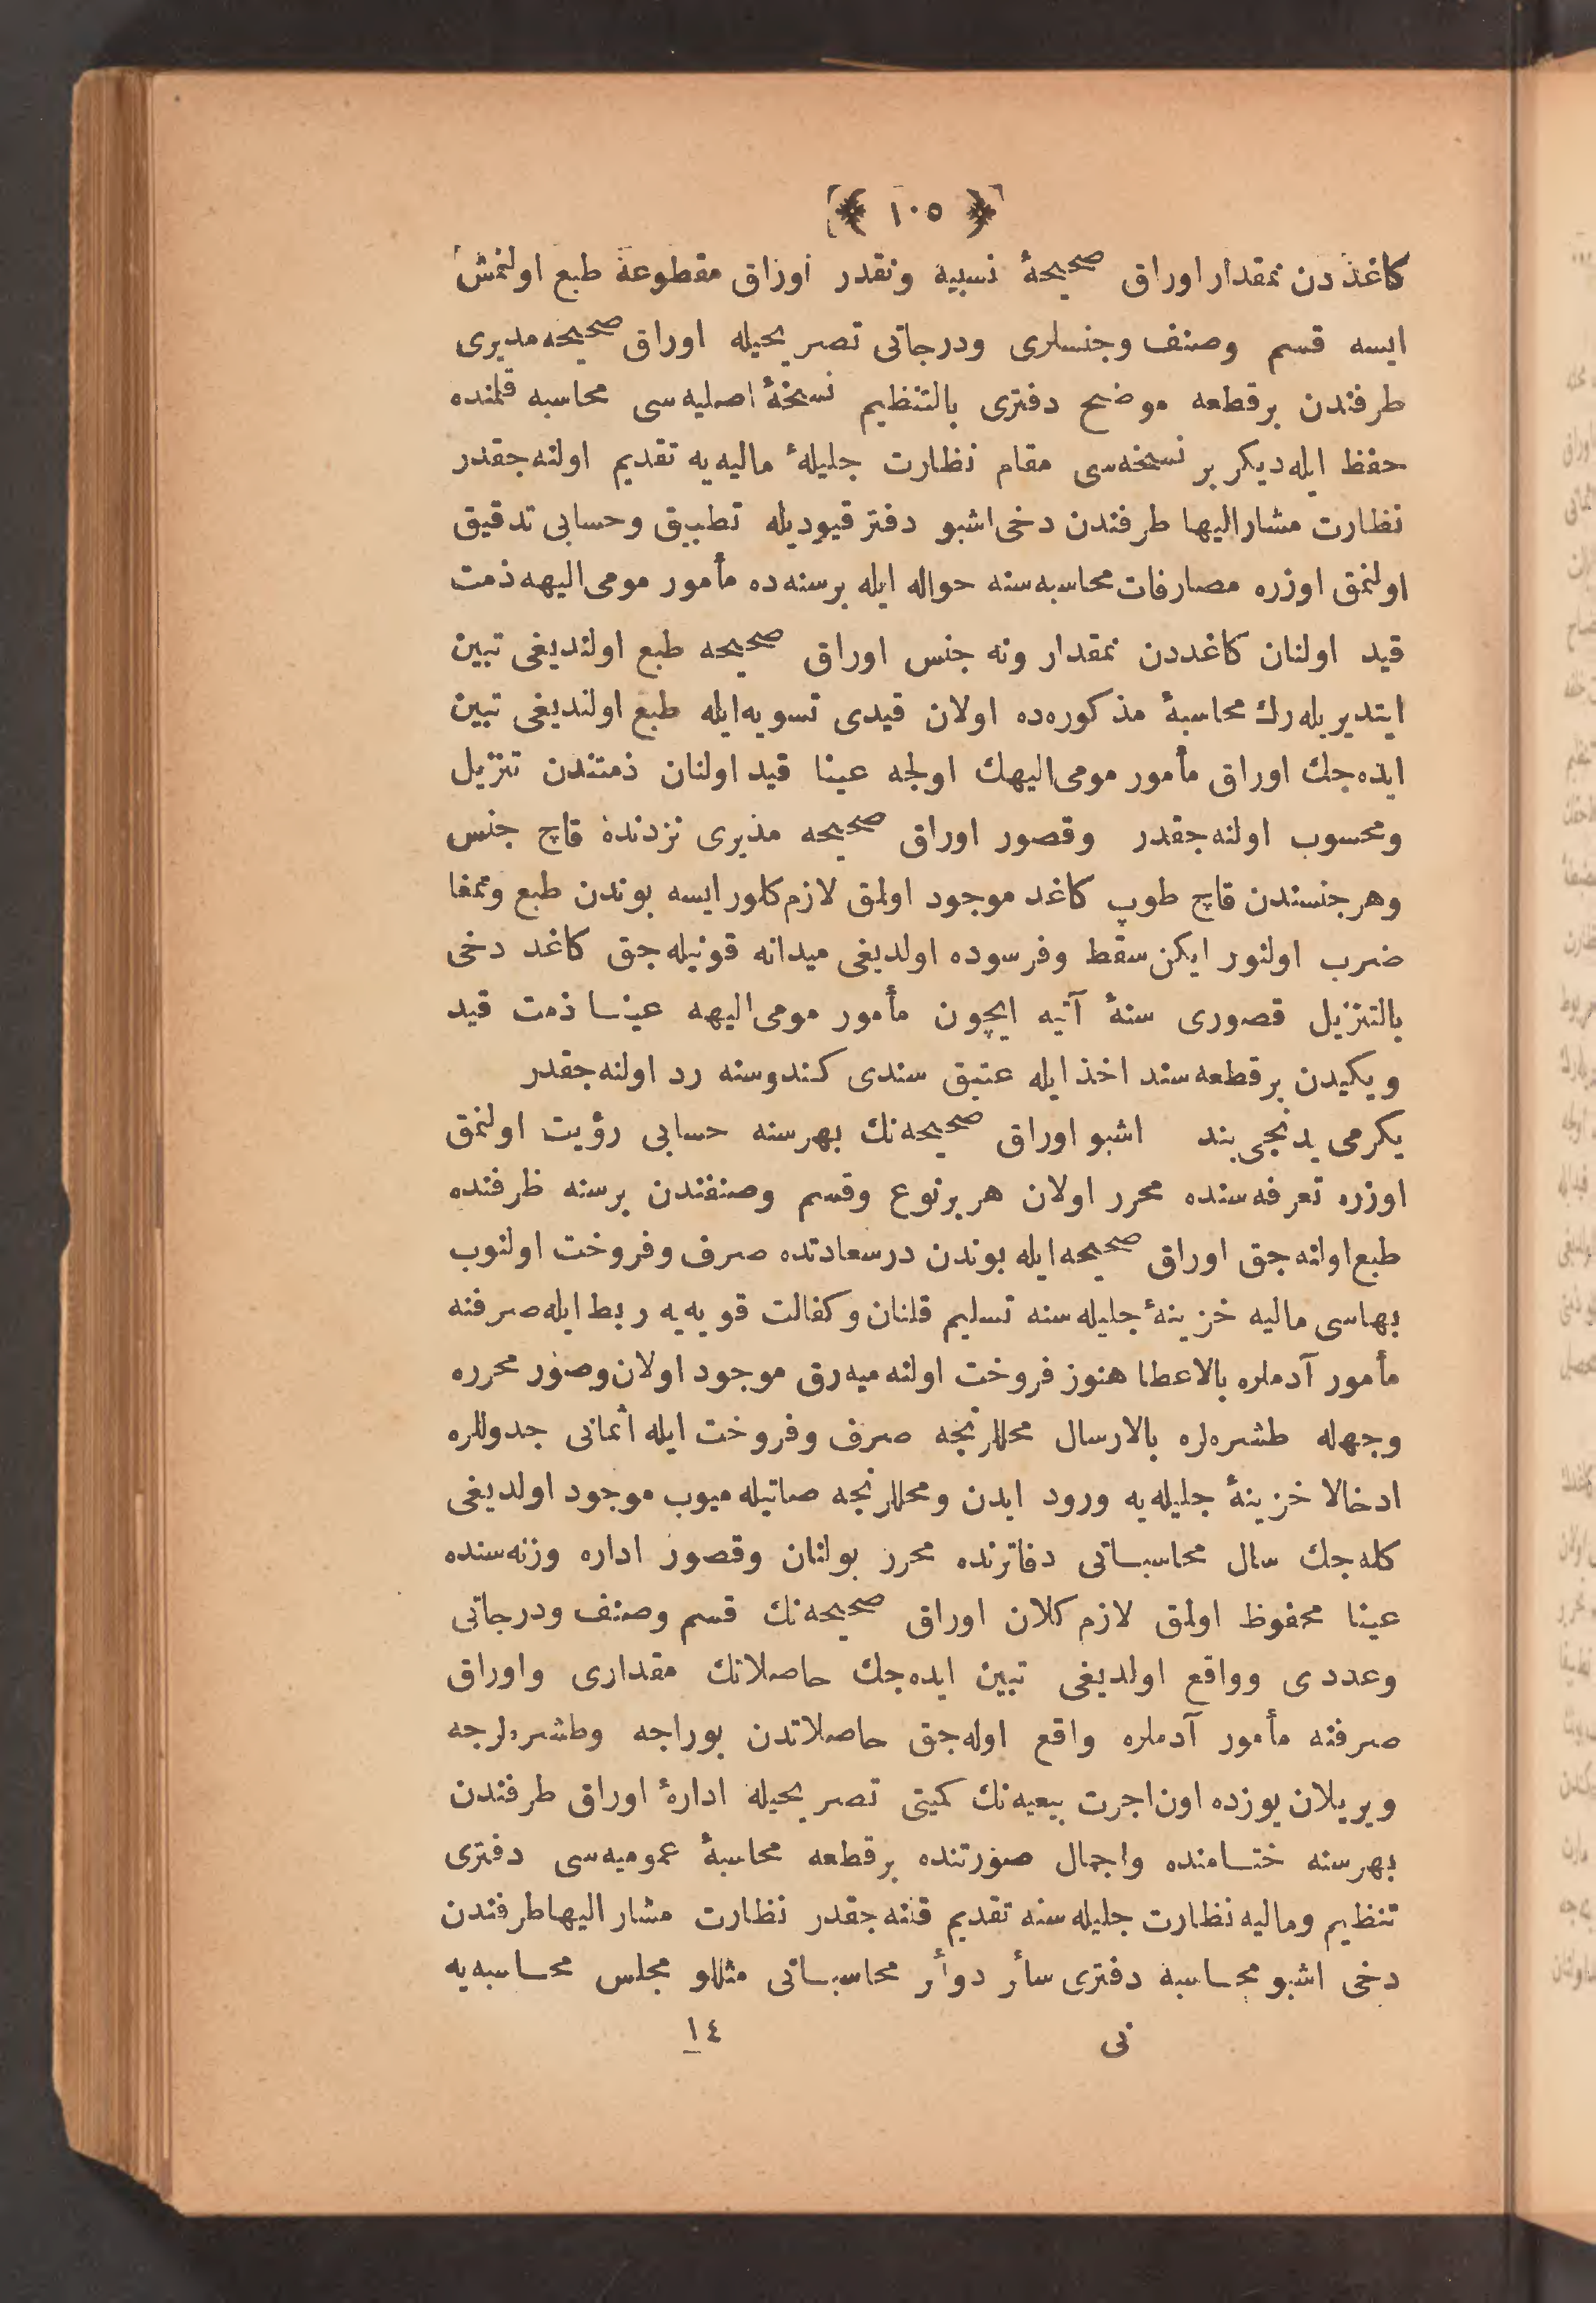 ١٠٥
كاغددن نمقدار اوراق صحيحهٔ نسبيه ونقدر اوراق مقطوعه طبع اولنمش
ايسه قسم وصنف وجنسلرى ودرجاتى تصريحيله اوراق صحيحه مديرى
طرفندن برقطعه موضح دفترى بالتنظيم نسخهٔ اصليه‌سى محاسبه قلمنده
حفظ ايله ديكر بر نسخه‌سى مقام نظارت جليلهٔ ماليه‌يه تقديم اولنه‌جقدر
نظارت مشاراليها طرفندن دخى اشبو دفتر قيوديله تطبيق وحسابى تدقيق
اولنمق اوزره مصارفات محاسبه‌سنه حواله ايله برسنه‌ده مأمور مومى‌اليهه ذمت
قيد اولنان كاغددن نمقدار ونه جنس اوراق صحيحه طبع اولنديغى تبين
ايتديريله‌رك محاسبهٔ مذكوره‌ده اولان قيدى تسويه‌ايله طبع اولنديغى تبين
ايده‌جك اوراق مأمور مومى‌اليهك اولجه عينا قيد اولنان ذمتندن تنزيل
ومحسوب اولنه‌جقدر وقصور اوراق صحيحه مديرى نزدنده قاچ جنس
وهرجنسندن قاچ طوپ كاغد موجود اولمق لازم‌كلور ايسه بوندن طبع وتمغا
ضرب اولنور ايكن سقط وفرسوده اولديغى ميدانه قونيله‌جق كاغد دخى
بالتنزيل قصورى سنهٔ آتيه ايچون مأمور مومى‌اليهه عينا ذمت قيد
ويكيدن برقطعه سند اخذ ايله عتيق سندى كندوسنه رد اولنه‌جقدر
يكرمى يدنجى بند اشبو اوراق صحيحه‌نك بهرسنه حسابى رؤيت اولنمق
اوزره تعرفه‌سنده محرر اولان هر برنوع وقسم وصنفندن برسنه ظرفنده
طبع اولنه‌جق اوراق صحيحه ايله بوندن درسعادتده صرف وفروخت اولنوب
بهاسى ماليه خزينهٔ جليله‌سنه تسليم قلنان وكفالت قويه‌يه ربط ايله صرفنه
مأمور آدملره بالاعطا هنوز فروخت اولنه‌ميه‌رق موجود اولان وصور محرره
وجهله طشره‌لره بالارسال محللرنجه صرف وفروخت ايله اثمانى جدوللره
ادخالا خزينهٔ جليله‌يه ورود ايدن ومحللرنجه صاتيله‌ميوب موجود اولديغى
كله‌جك سال محاسباتى دفاترنده محرر بولنان وقصور اداره وزنه‌سنده
عينا محفوظ اولمق لازم كلان اوراق صحيحه‌نك قسم وصنف ودرجاتى
وعددى وواقع اولديغى تبين ايده‌جك حاصلاتك مقدارى واوراق
صرفنه مأمور آدملره واقع اوله‌جق حاصلاتدن بوراجه وطشره‌لرجه
ويريلان يوزده اون اجرت بيعيه‌نك كميتى تصريحيله ادارهٔ اوراق طرفندن
بهرسنه ختامنده واجمال صورتنده برقطعه محاسبهٔ عموميه‌سى دفترى
تنظيم وماليه نظارت جليله‌سنه تقديم قلنه‌جقدر نظارت مشار اليها طرفندن
دخى اشبو محاسبه دفترى سأر دوأر محاسباتى مثللو مجلس محاسبه‌يه
نى ١٤